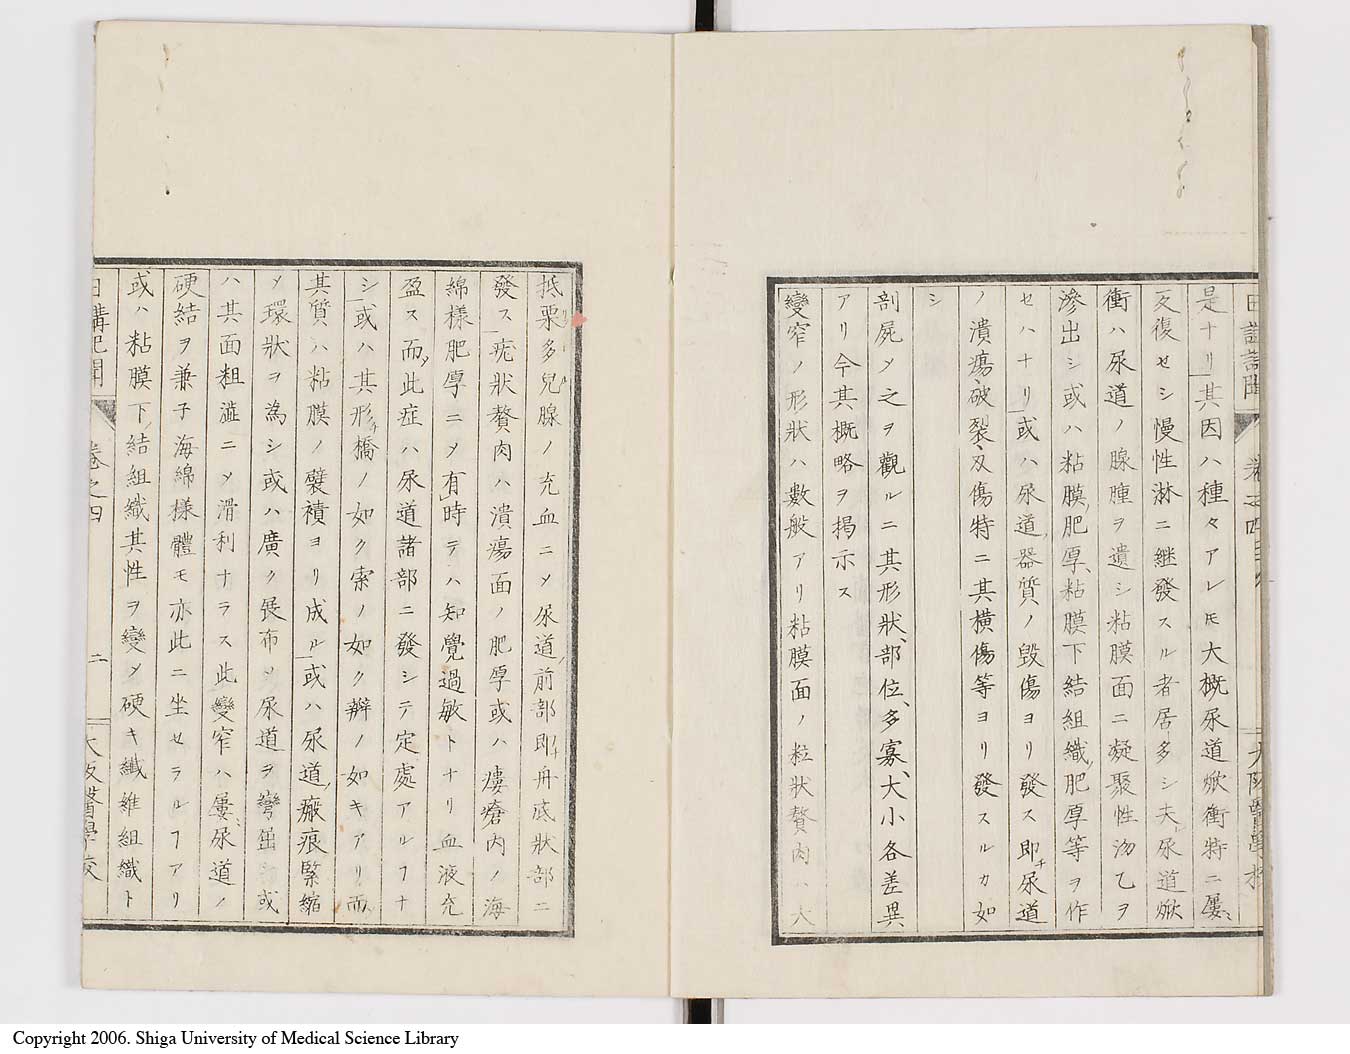 日講記聞 卷之四
大阪醫學校
是ナリ其因ハ種々アレ𪜈大概尿道焮衝特ニ屢〻
反復セシ慢性淋ニ継發スル者居多シ夫尿道焮
衝ハ尿道ノ腺腫ヲ遺シ粘膜面ニ凝聚性沕乙ヲ
滲出シ或ハ粘膜肥厚、粘膜下結組織肥厚等ヲ作
セハナリ或ハ尿道器質ノ毀傷ヨリ發ス即チ尿道
ノ潰瘍、破裂、刄傷特ニ其橫傷等ヨリ發スルカ如
シ
剖屍〆之ヲ觀ルニ其形狀、部位、多寡、大小各差異
アリ今其概略ヲ掲示ス
變窄ノ形狀ハ數般アリ粘膜面ノ粒狀贅肉ハ大
抵栗多兒腺ノ充血ニ〆尿道前部即チ舟底狀部ニ
發ス疣狀贅肉ハ潰瘍面ノ肥厚或ハ瘻瘡内ノ海
綿樣肥厚ニ〆有時テハ知覺過敏トナリ血液充
盈ス而〆此症ハ尿道諸部ニ發シテ定處アルヿナ
シ或ハ其形チ橋ノ如ク索ノ如ク辨ノ如キアリ而〆
其質ハ粘膜ノ襞襀ヨリ成ル或ハ尿道瘢痕緊縮
〆環狀ヲ為シ或ハ廣ク展布シ尿道ヲ彎-shaped
ハ其面粗澁ニ〆滑利ナラス此變窄ハ屢〻尿道ノ
硬結ヲ兼子海綿樣體モ亦此ニ坐セラルヿアリ
或ハ粘膜下結組織其性ヲ變〆硬キ纎維組織ト
日講記聞 卷之四 二
大阪醫學校
Copyright 2006. Shiga University of Medical Science Library